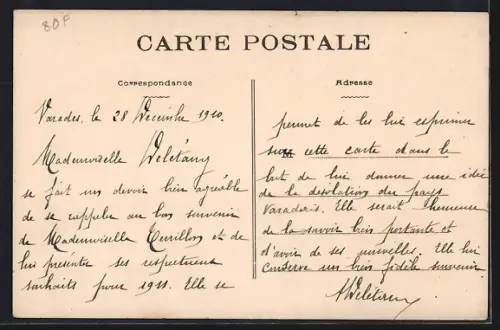 80F
CARTE POSTALE
Correspondance
Varades, le 28 Décembre 1910.
Mademoiselle Delétang
se fait un devoir bien agréable
de se rappeler au bon souvenir
de Mademoiselle et de
lui présenter ses respectueux
souhaits pour 1911. Elle se
Adresse
permet de les lui exprimer
sur cette carte dans le
but de lui donner une idée
de la désolation du pays
Varadais. Elle serait heureuse
de la savoir bien portante et
d'avoir de ses nouvelles. Elle lui
conserve un bien fidèle souvenir.
Delétang